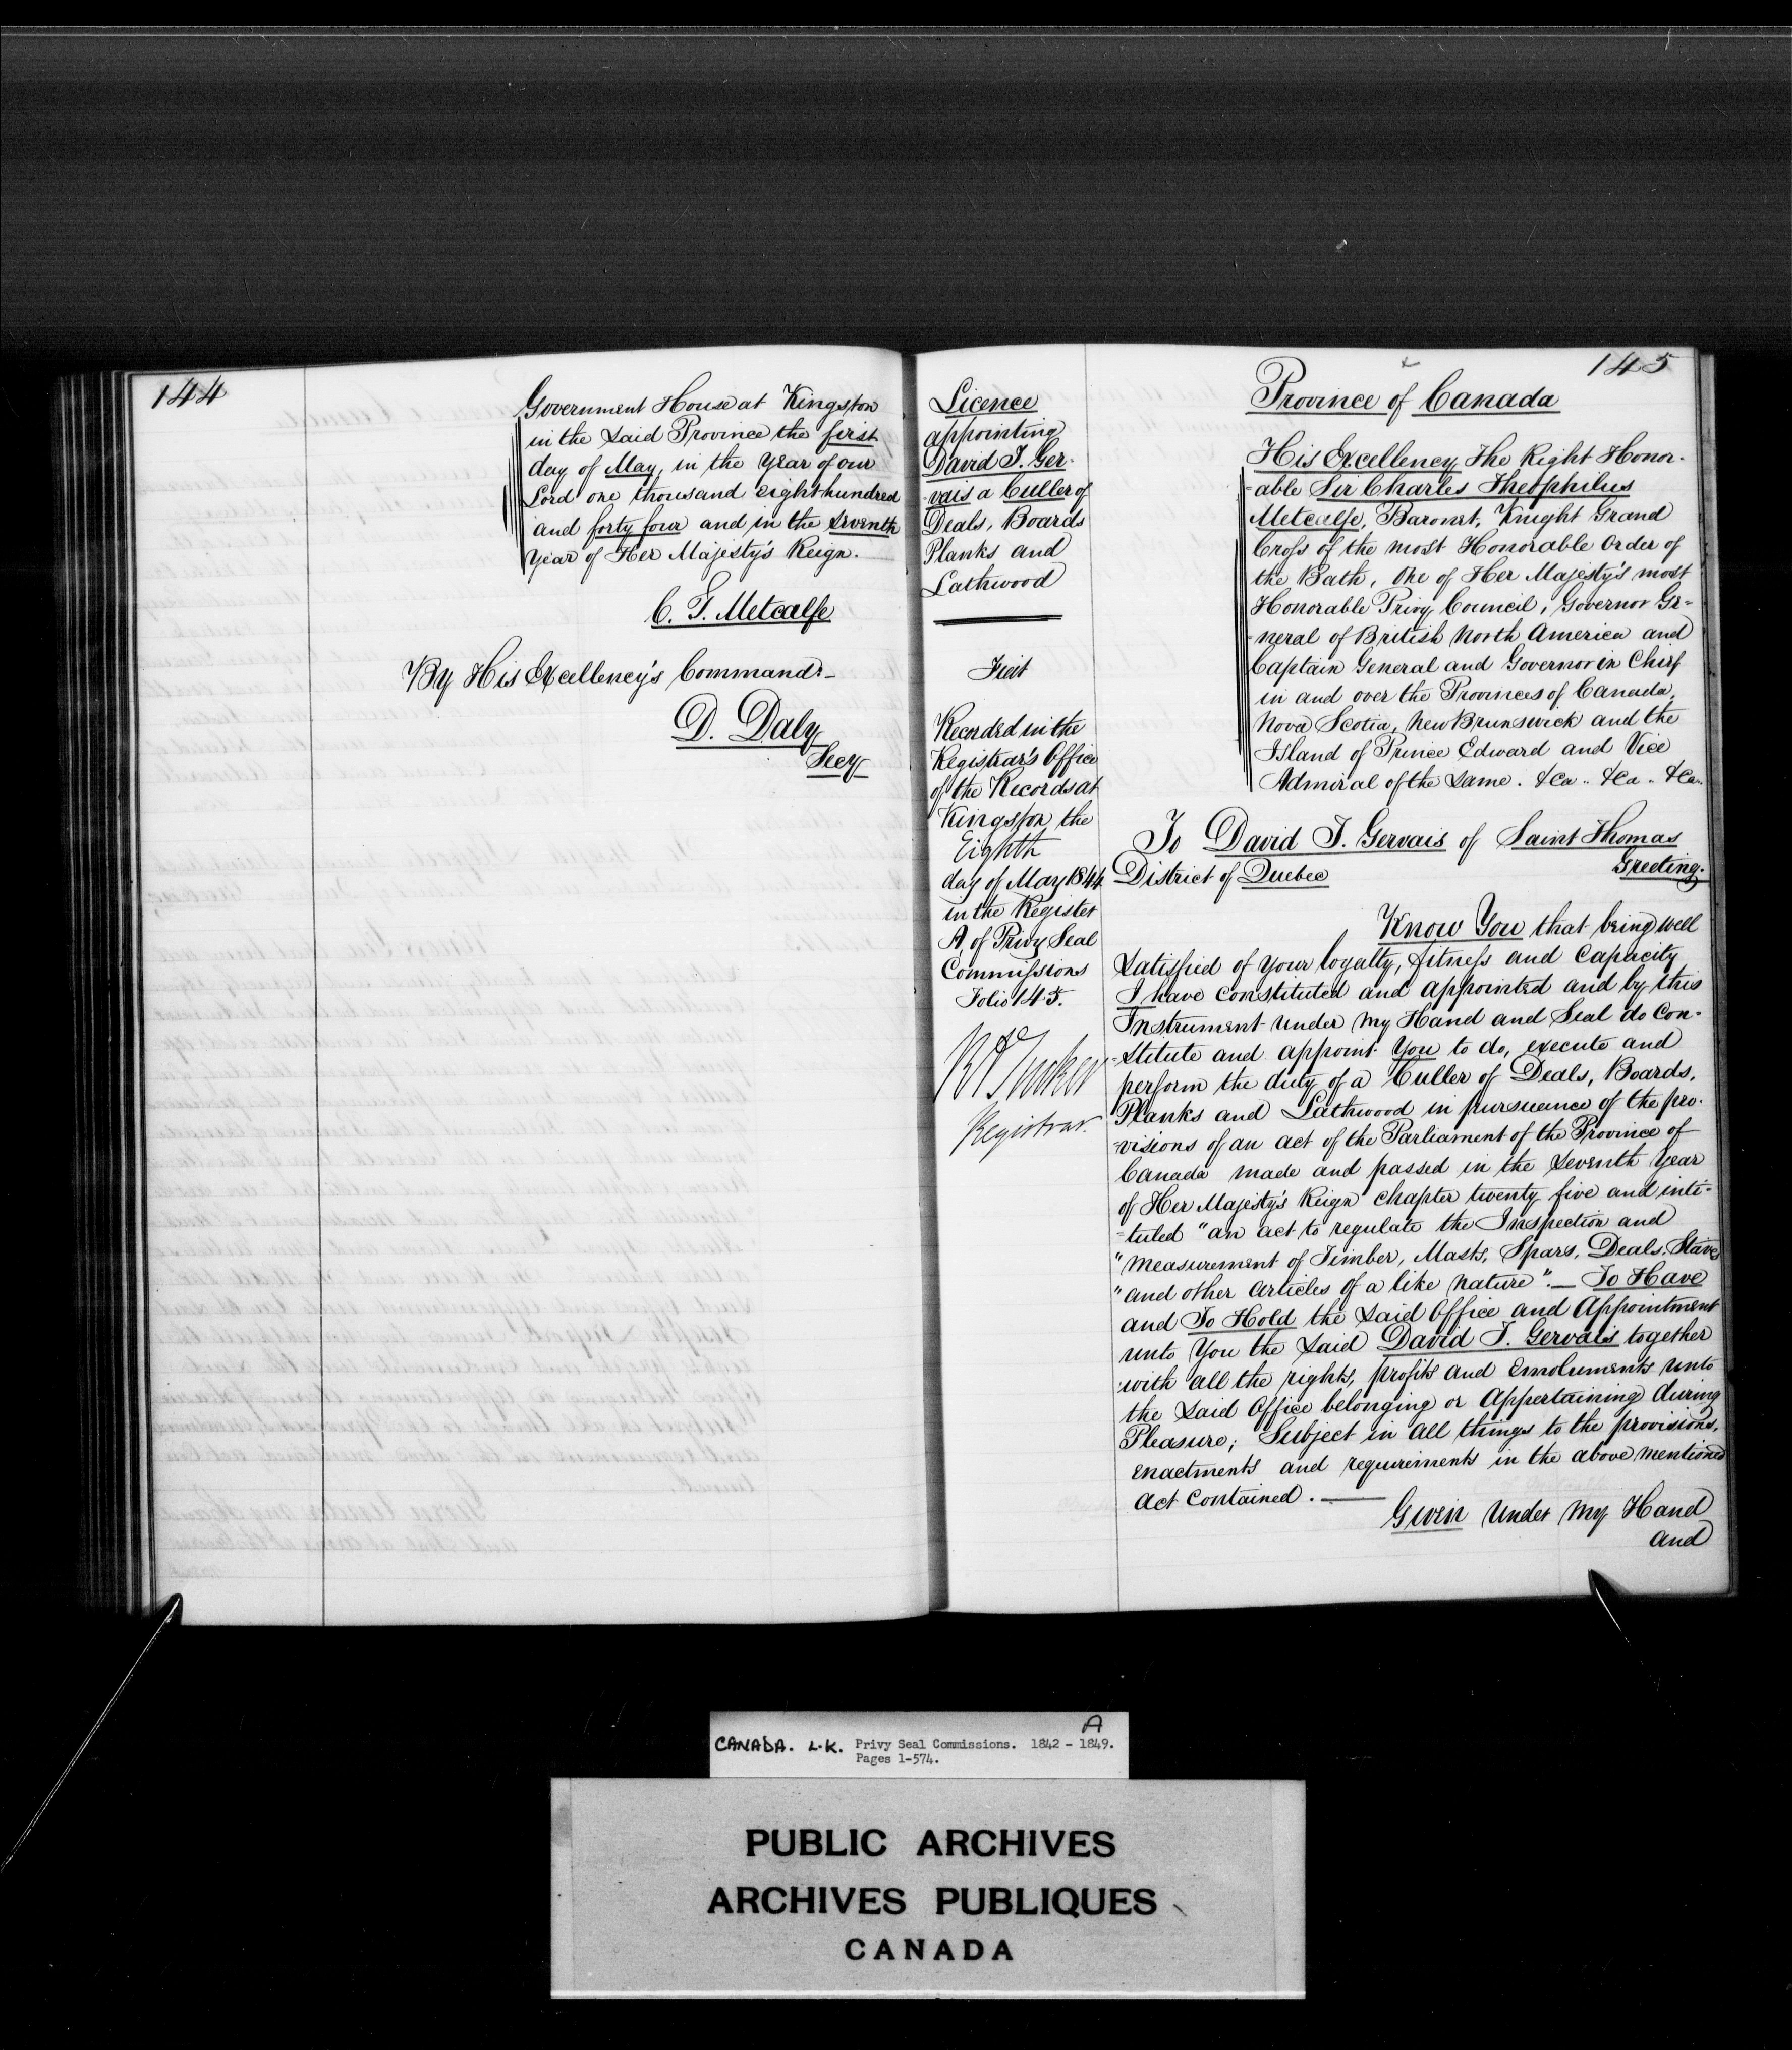 144
Government House at Kingston
in the Said Province the first
day of May, in the Year of our
Lord one thousand eight hundred
and forty four and in the Seventh
Year of Her Majesty's Reign.
C. T. Metcalfe
By His Excellency's Command:-
D. Daly
Secy
Licence
appointing
David T. Ger-
-vais a Culler of
Deals, Boards
Planks and
Lathwood
Fiat
Recorded in the
Registrar's Office
of the Records at
Kingston the
Eighth
day of May 1844
in the Register
A, of Privy Seal
Commissions
Folio 145.
R A Tucker
Registrar.
145
Province of Canada
His Excellency The Right Honor-
-able Sir Charles Theophilus
Metcalfe, Baronet, Knight Grand
Cross of the most Honorable Order of
the Bath, One of Her Majesty's most
Honorable Privy Council, Governor Ge-
-neral of British North America and
Captain General and Governor in Chief
in and over the Provinces of Canada,
Nova Scotia, New Brunswick and the
Island of Prince Edward and Vice
Admiral of the Same. &ca.. &ca.. &ca..
To David T. Gervais of Saint Thomas
District of Quebec Greeting.
Know You that being well
Satisfied of your loyalty, fitness and Capacity
I have constituted and appointed and by this
Instrument under my Hand and Seal do Con-
-stitute and appoint You to do, execute and
perform the duty of a Culler of Deals, Boards,
Planks and Lathwood in pursuance of the pro-
-visions of an act of the Parliament of the Province of
Canada made and passed in the Seventh Year
of Her Majesty's Reign Chapter twenty five and inti-
-tuled "an act to regulate the Inspection and
"measurement of Timber, Masts, Spars, Deals, Staves
"and other articles of a like nature".— To Have
and To Hold the Said Office and Appointment
unto You the Said David T. Gervais together
with all the rights, profits and Emoluments unto
the Said Office belonging or Appertaining during
Pleasure; Subject in all things to the provisions,
enactments and requirements in the above mentioned
act Contained.—
Given Under my Hand
and
A
CANADA. L.K. Privy Seal Commissions. 1842 - 1849.
Pages 1-574.
PUBLIC ARCHIVES
ARCHIVES PUBLIQUES
CANADA